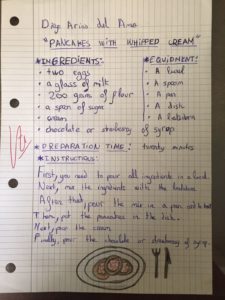 Diego Arias del Amo
"PANCAKES WITH WHIPPED CREAM"
*INGREDIENTS:
· two eggs
· a glass of milk
· 200 grams of flour
· a spoon of sugar
· cream
· chocolate or strawberry of syrop
*EQUIPMENT:
· A bowl
· A spoon
· A pan
· A dish
· A
*PREPARATION TIME: twenty minutes
*INSTRUCTIONS:
First, you need to pour all ingredients in a bowl.
Next, mix the ingredients with the
After that, pour the mix in a pan and
Then, put the pancakes in the dish.
Next, pour the cream
Finally, pour the chocolate or strawberry of syrop.